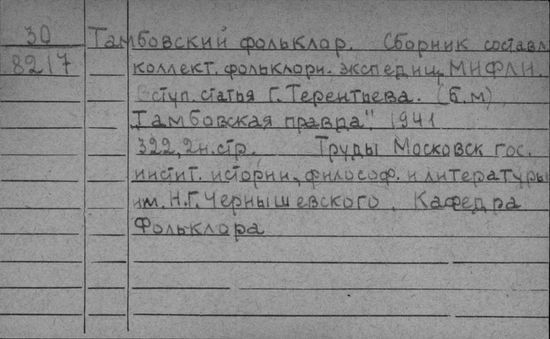 30 Тамбовский фольклор. Сборник составл.
8217 коллект. фольклорн. экспедиц. МИФЛИ.
Вступ. статья Г. Терентьева. (Б.м)
"Тамбовская правда" 1941
322, 2н.стр. Труды Московск гос.
инстит. истории, философ. и литературы
им. Н.Г. Чернышевского. Кафедра
Фольклора